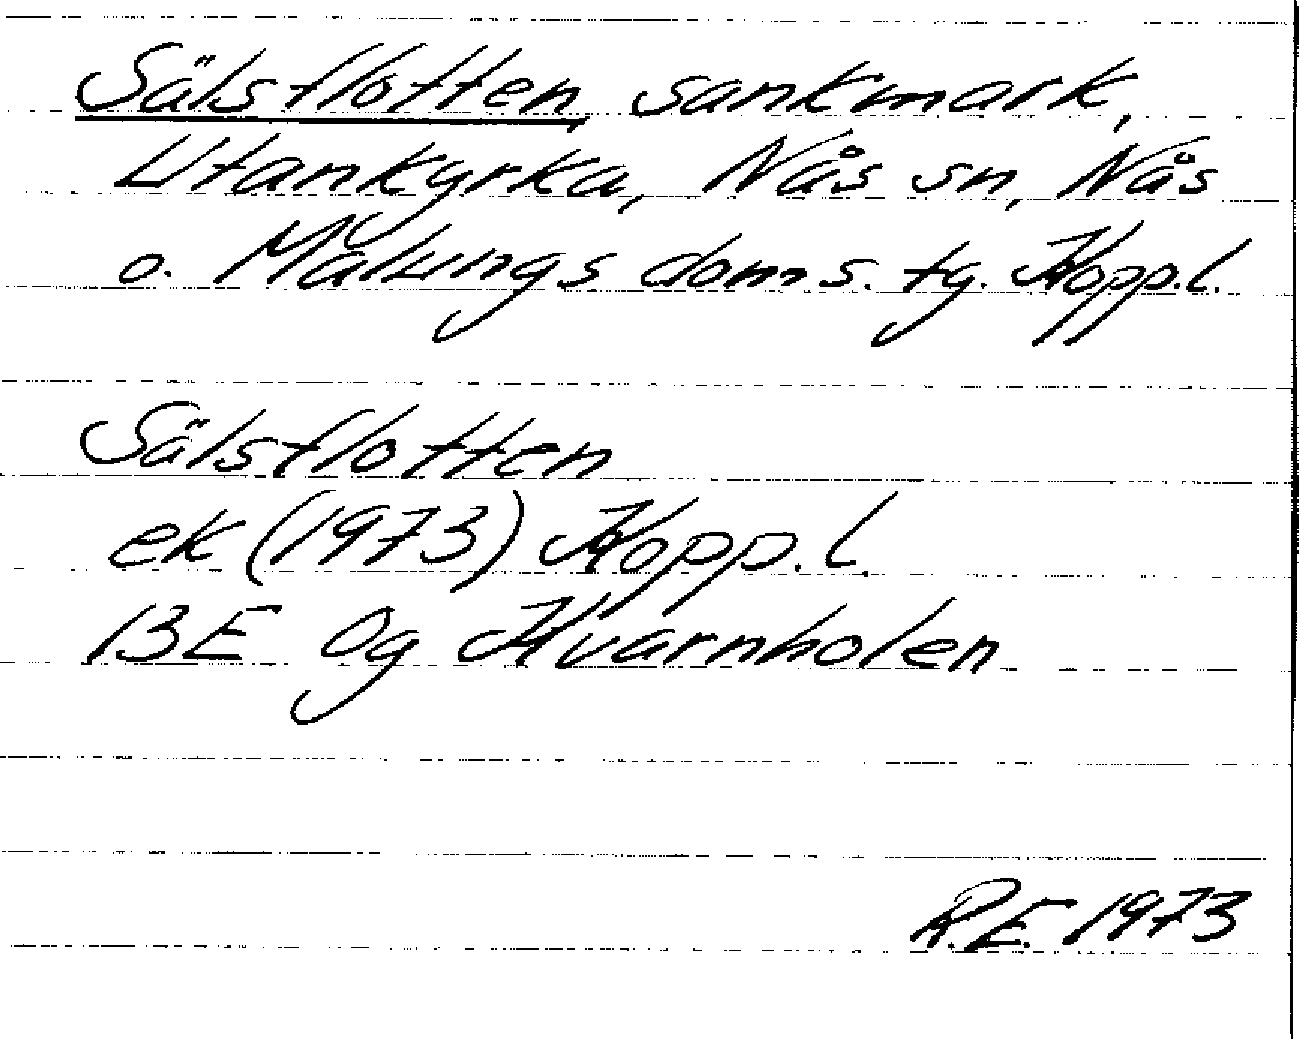 Sälsflotten, sankmark,
Utankyrka, Nås sn, Nås
o. Malungs doms. tg. Kopp.l.
Sälsflotten
ek (1973) Kopp.l.
13E 0g Kvarnholen
R.E. 1973